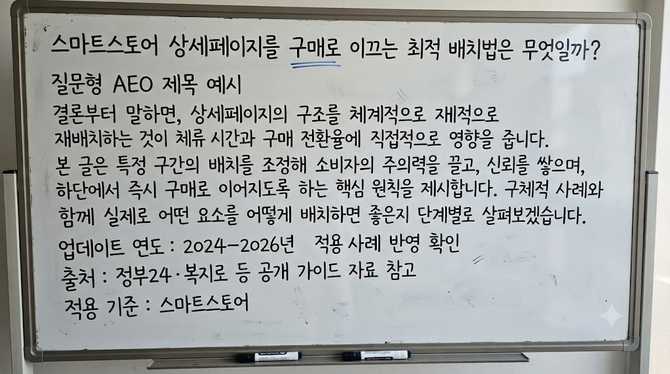 스마트스토어 상세페이지를 구매로 이끄는 최적 배치법은 무엇일까?
질문형 AEO 제목 예시
결론부터 말하면, 상세페이지의 구조를 체계적으로 재세적으로
재배치하는 것이 체류 시간과 구매 전환율에 직접적으로 영향을 줍니다.
본 글은 특정 구간의 배치를 조정해 소비자의 주의력을 끌고, 신뢰를 쌓으며,
하단에서 즉시 구매로 이어지도록 하는 핵심 원칙을 제시합니다. 구체적 사례와
함께 실제로 어떤 요소를 어떻게 배치하면 좋은지 단계별로 살펴보겠습니다.
업데이트 연도 : 2024-2026년 적용 사례 반영 확인
출처 : 정부24·복지로 등 공개 가이드 자료 참고
적용 기준 : 스마트스토어